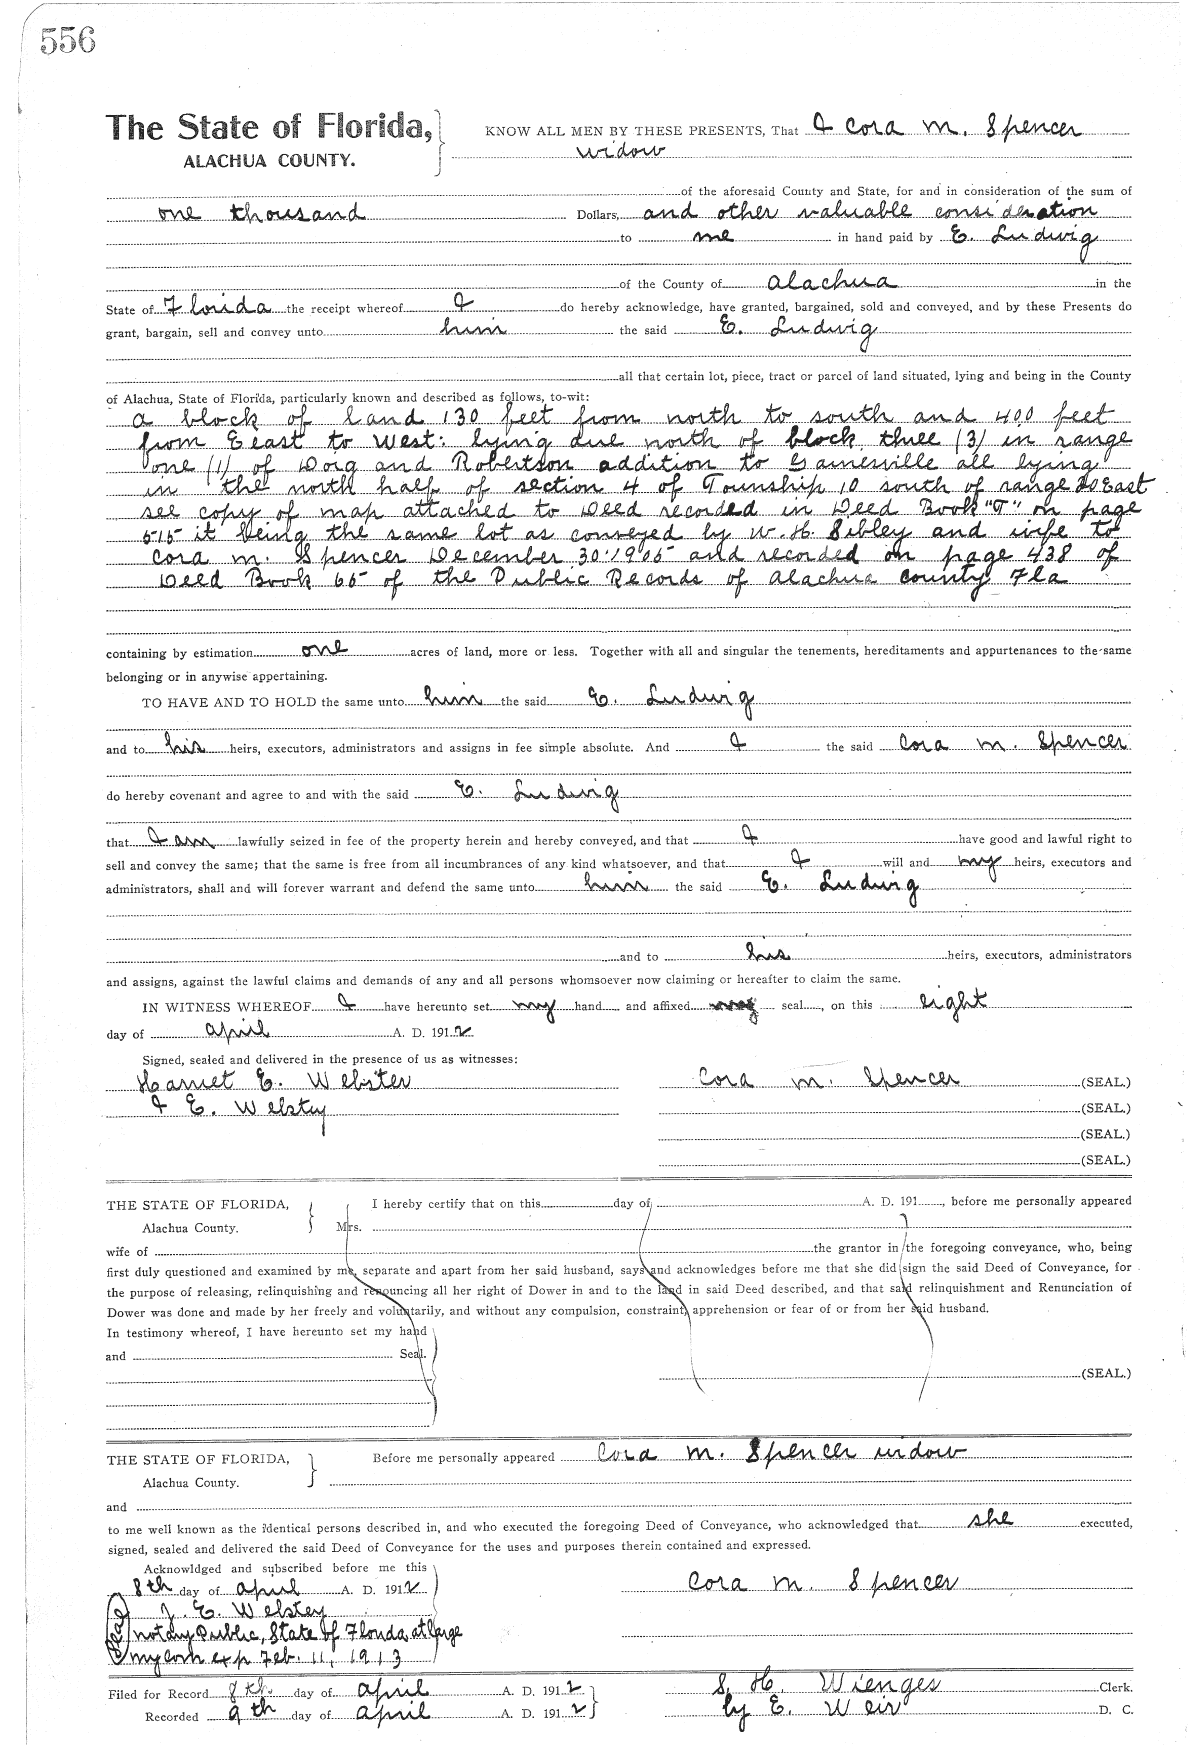 556
The State of Florida, KNOW ALL MEN BY THESE PRESENTS, That I Cora M. Spencer
ALACHUA COUNTY. widow
of the aforesaid County and State, for and in consideration of the sum of
one thousand Dollars, and other valuable consideration
to me in hand paid by E. Ludwig
of the County of Alachua in the
State of Florida the receipt whereof I do hereby acknowledge, have granted, bargained, sold and conveyed, and by these Presents do
grant, bargain, sell and convey unto him the said E. Ludwig
all that certain lot, piece, tract or parcel of land situated, lying and being in the County
of Alachua, State of Florida, particularly known and described as follows, to-wit:
A block of land 130 feet from north to south and 400 feet
from Eeast to West: lying due north of block three (3) in range
one (1) of Doig and Robertson addition to Gainesville all lying
in the north half of section 4 of Township 10 south of range 20 East
see copy of map attached to Deed recorded in Deed Book "T" on page
515 it being the same lot as conveyed by W. H. Sibley and wife to
Cora M. Spencer December 30 1905 and recorded on page 438 of
Deed Book 65 of the Public Records of Alachua County Fla
containing by estimation one acres of land, more or less. Together with all and singular the tenements, hereditaments and appurtenances to the same
belonging or in anywise appertaining.
TO HAVE AND TO HOLD the same unto him the said E. Ludwig
and to his heirs, executors, administrators and assigns in fee simple absolute. And I the said Cora M. Spencer
do hereby covenant and agree to and with the said E. Ludwig
that I am lawfully seized in fee of the property herein and hereby conveyed, and that I have good and lawful right to
sell and convey the same; that the same is free from all incumbrances of any kind whatsoever, and that I will and my heirs, executors and
administrators, shall and will forever warrant and defend the same unto him the said E. Ludwig
and to his heirs, executors, administrators
and assigns, against the lawful claims and demands of any and all persons whomsoever now claiming or hereafter to claim the same.
IN WITNESS WHEREOF I have hereunto set my hand and affixed my seal, on this eight
day of April A. D. 1912
Signed, sealed and delivered in the presence of us as witnesses:
Harriet E. Webster Cora M. Spencer (SEAL.)
J E. Welsty (SEAL.)
(SEAL.)
(SEAL.)
THE STATE OF FLORIDA, I hereby certify that on this day of A. D. 191 , before me personally appeared
Alachua County. Mrs.
wife of the grantor in the foregoing conveyance, who, being
first duly questioned and examined by me, separate and apart from her said husband, says and acknowledges before me that she did sign the said Deed of Conveyance, for
the purpose of releasing, relinquishing and renouncing all her right of Dower in and to the land in said Deed described, and that said relinquishment and Renunciation of
Dower was done and made by her freely and voluntarily, and without any compulsion, constraint, apprehension or fear of or from her said husband.
In testimony whereof, I have hereunto set my hand
and Seal.
(SEAL.)
THE STATE OF FLORIDA, Before me personally appeared Cora M. Spencer widow
Alachua County.
and
to me well known as the identical persons described in, and who executed the foregoing Deed of Conveyance, who acknowledged that she executed,
signed, sealed and delivered the said Deed of Conveyance for the uses and purposes therein contained and expressed.
Acknowldged and subscribed before me this
8th day of April A. D. 1912 Cora M. Spencer
J. E. Welsty
Notary Public, State of Florida, at large
my com exp Feb. 11, 1913
Filed for Record 8th day of April A. D. 1912 S. H. Wienges Clerk.
Recorded 9th day of April A. D. 1912 by E. Weir D. C.